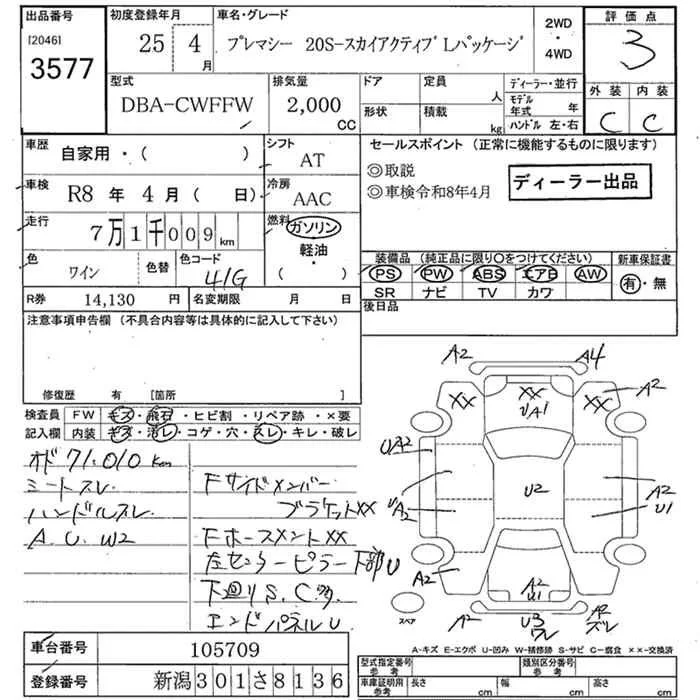 出品番号 初度登録年月 車名・グレード 2WD・4WD 評価点
[2046] 3577 25 4月 プレマシー 20S-スカイアクティブ Lパッケージ 3
型式 排気量 ドア 定員 人 ディーラー・並行 外装 内装
DBA-CWFFW 2,000 CC 形状 積載 kg モデル年式 年 ハンドル 左・右 C C
車歴 自家用・( ) シフト AT セールスポイント (正常に機能するものに限ります)
◎取説
◎車検令和8年4月 ディーラー出品
車検 R8年 4月( 日) 冷房 AAC
走行 7万1千009km 燃料 ガソリン 軽油・( )
色 ワイン 色替 色コード 41G
装備品 (純正品に限り○をつけてください) 新車保証書
PS PW ABS エアB AW 有・無
SR ナビ TV カワ
R券 14,130円 名変期限 月 日 後日品
注意事項申告欄 (不具合内容等は具体的に記入して下さい)
修復歴 有 [箇所 ]
検査員 FW キズ・飛石・ヒビ割・リペア跡・×要
記入欄 内装 キズ・汚レ・コゲ・穴・スレ・キレ・破レ
オド 71,010km
シートスレ
ハンドルスレ
A.U.W2
FサイドメンバーブラケットXX
FホースメントXX
左センターピラー下部U
下廻りS.C多
エンドパネルU
A2 A4
XX XX XX A2
UA1
UA2
UA2 U2 A2 U1
A2 A2 U1
A2 U3 ワレ A2 ズレ
スペア
A-キズ E-エクボ U-凹み W-補修跡 S-サビ C-腐食 ××-交換済
車台番号 105709
登録番号 新潟301さ8136
型式指定番号 参考 類別区分番号 参考
車庫証明用 参考 長さ cm 幅 cm 高さ cm